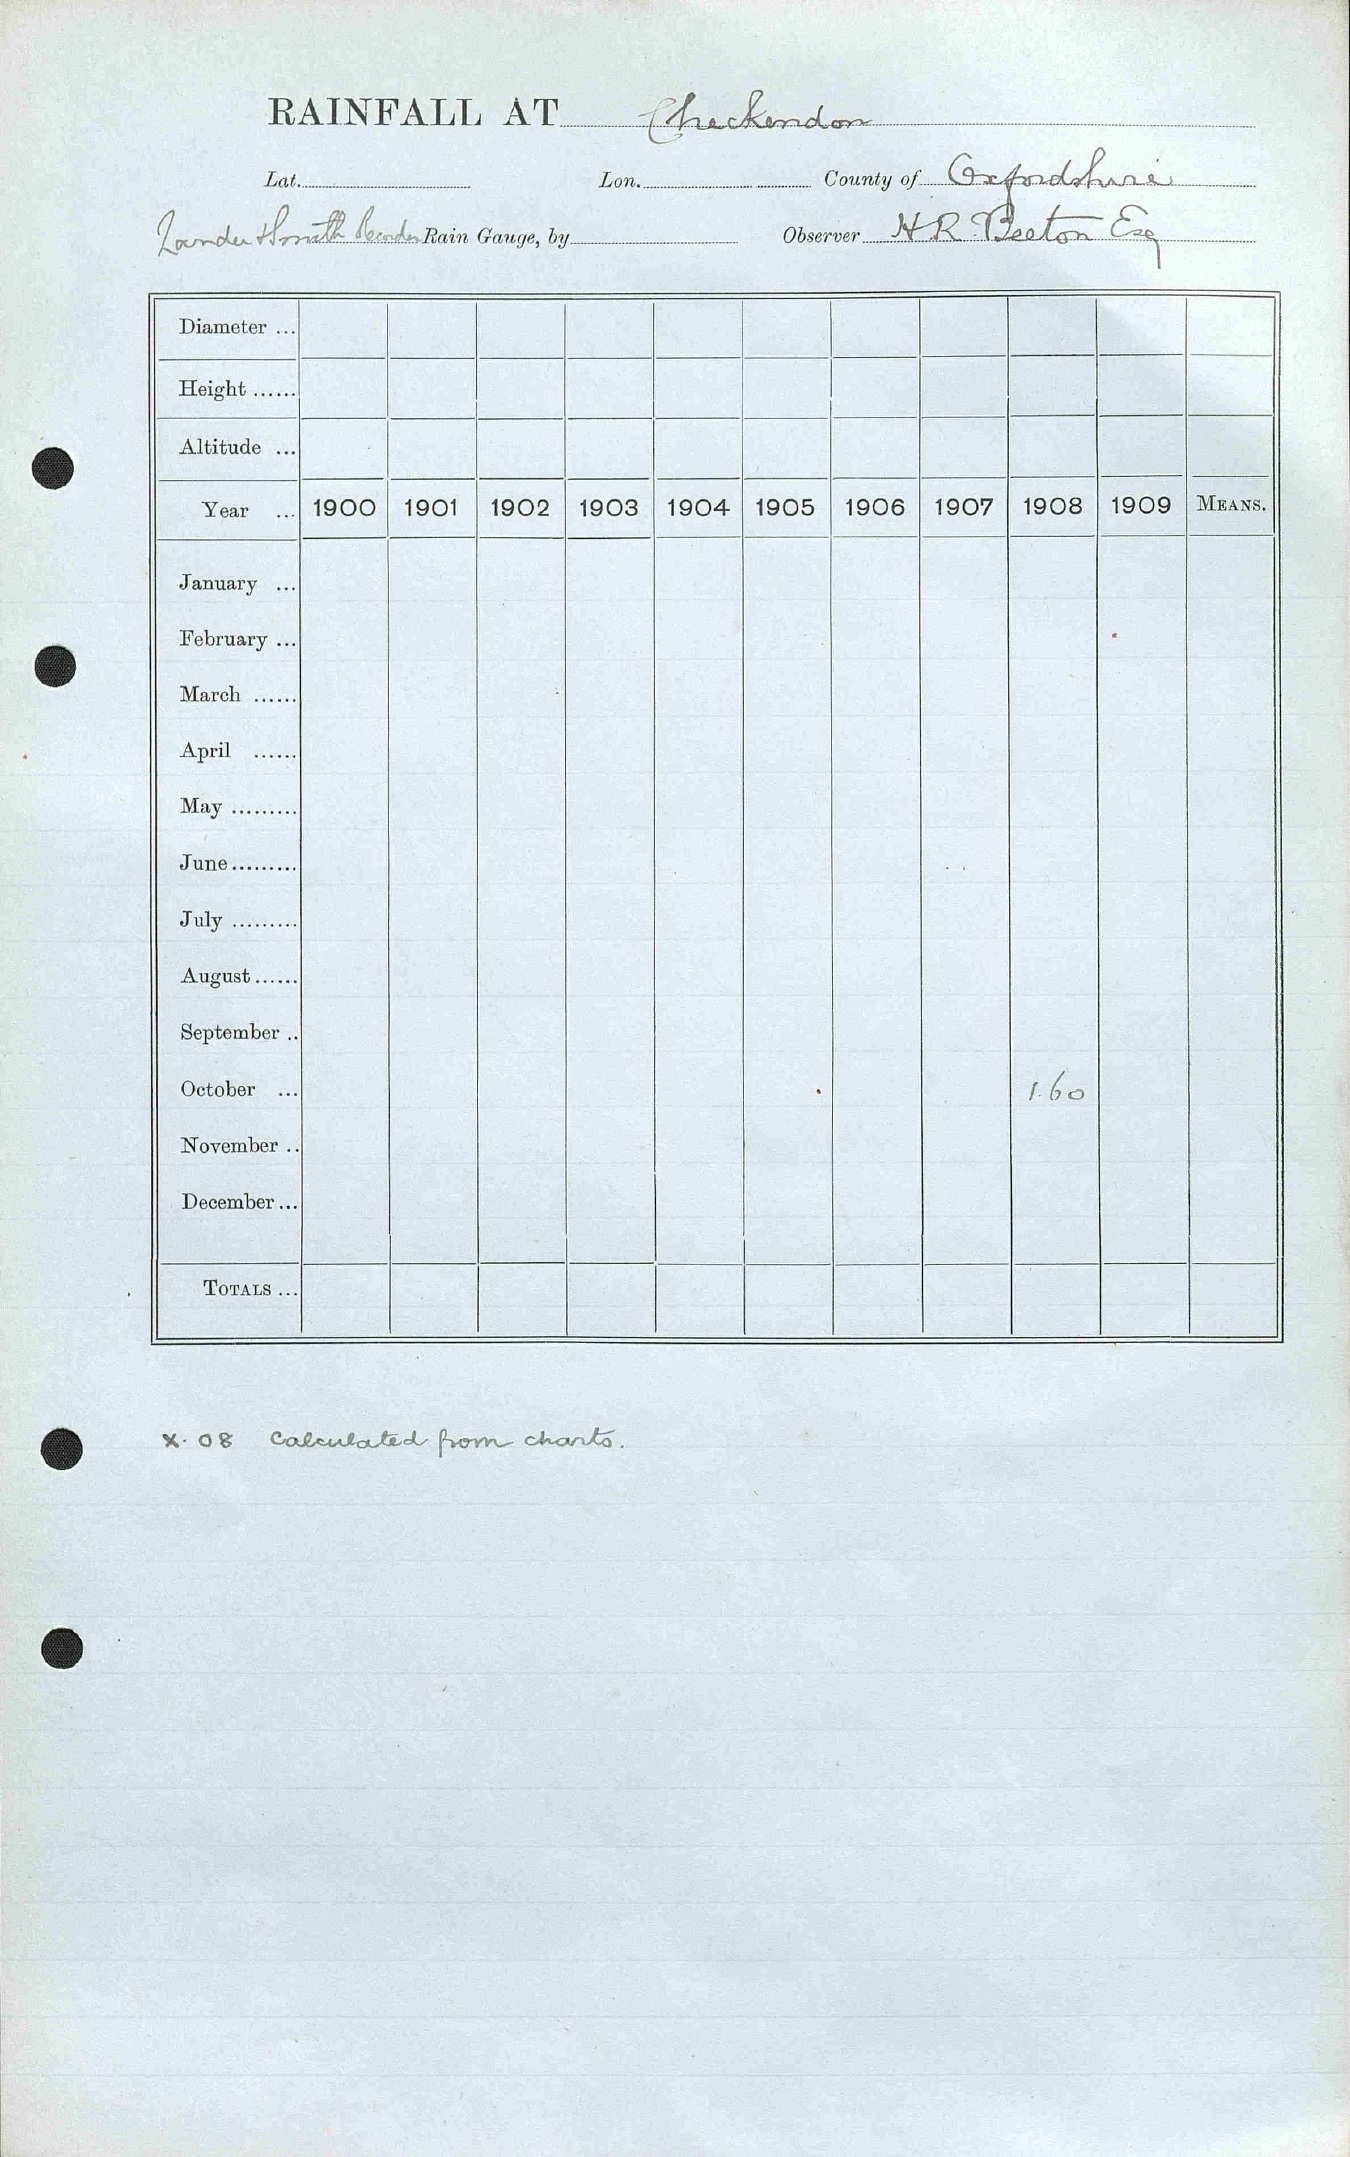 RAINFALL AT Checkendon
Lat. Lon. County of Oxfordshire
Lander & Smith Recorder Rain Gauge, by Observer H R Beeton Esq
Diameter ...
Height ......
Altitude ...
Year ... 1900 1901 1902 1903 1904 1905 1906 1907 1908 1909 MEANS.
January ...
February ...
March ......
April ......
May .........
June .........
July .........
August ......
September ..
October ... 1.60
November ..
December ...
TOTALS ...
X. 08 Calculated from charts.